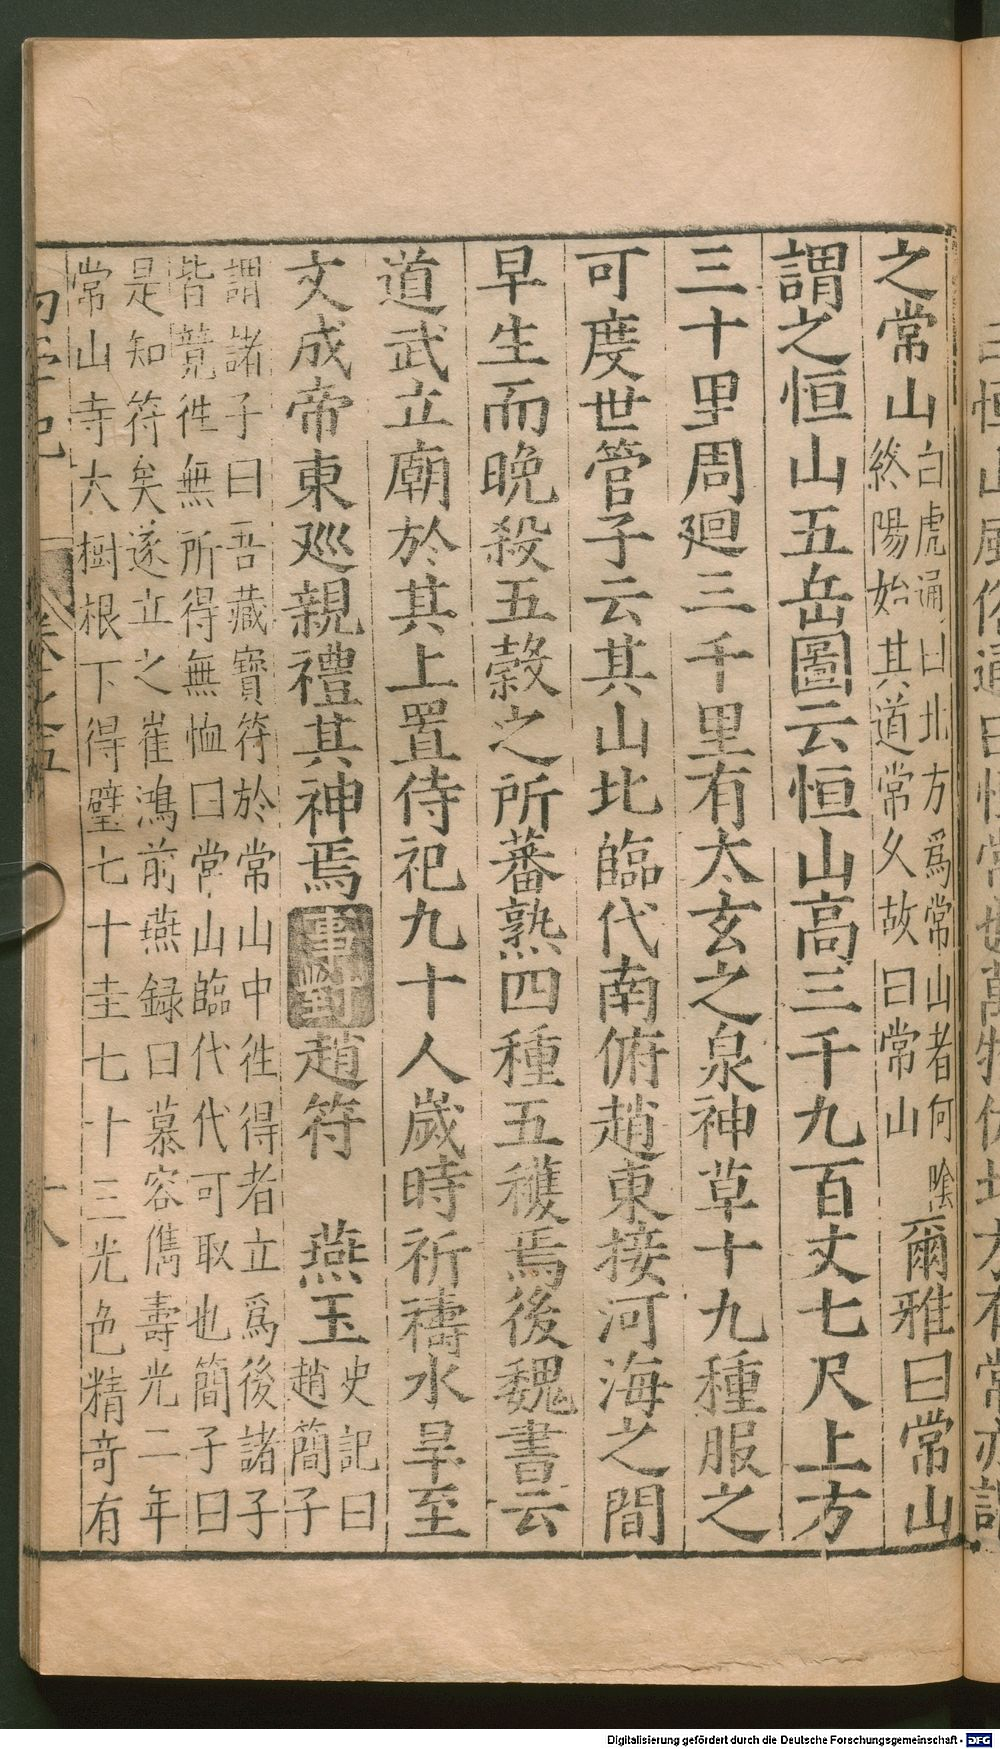 之常山白虎通曰北方爲常山者何陰終陽始其道常久故曰常山爾雅曰常山
謂之恒山五岳圖云恒山高三千九百丈七尺上方
三十里周廻三千里有太玄之泉神草十九種服之
可度世管子云其山北臨代南俯趙東接河海之間
早生而晚殺五穀之所蕃熟四種五穫焉後魏書云
道武立廟於其上置侍祀九十人歲時祈禱水旱至
文成帝東廵親禮其神焉事對趙符 燕玉史記曰趙簡子
謂諸子曰吾藏寶符於常山中徃得者立爲後諸子
皆競徃無所得無恤曰常山臨代代可取也簡子曰
是知符矣遂立之崔鴻前燕録曰慕容儁壽光二年
常山寺大樹根下得璧七十圭七十三光色精竒有
初學記 卷之五 十八
Digitalisierung gefördert durch die Deutsche Forschungsgemeinschaft - DFG